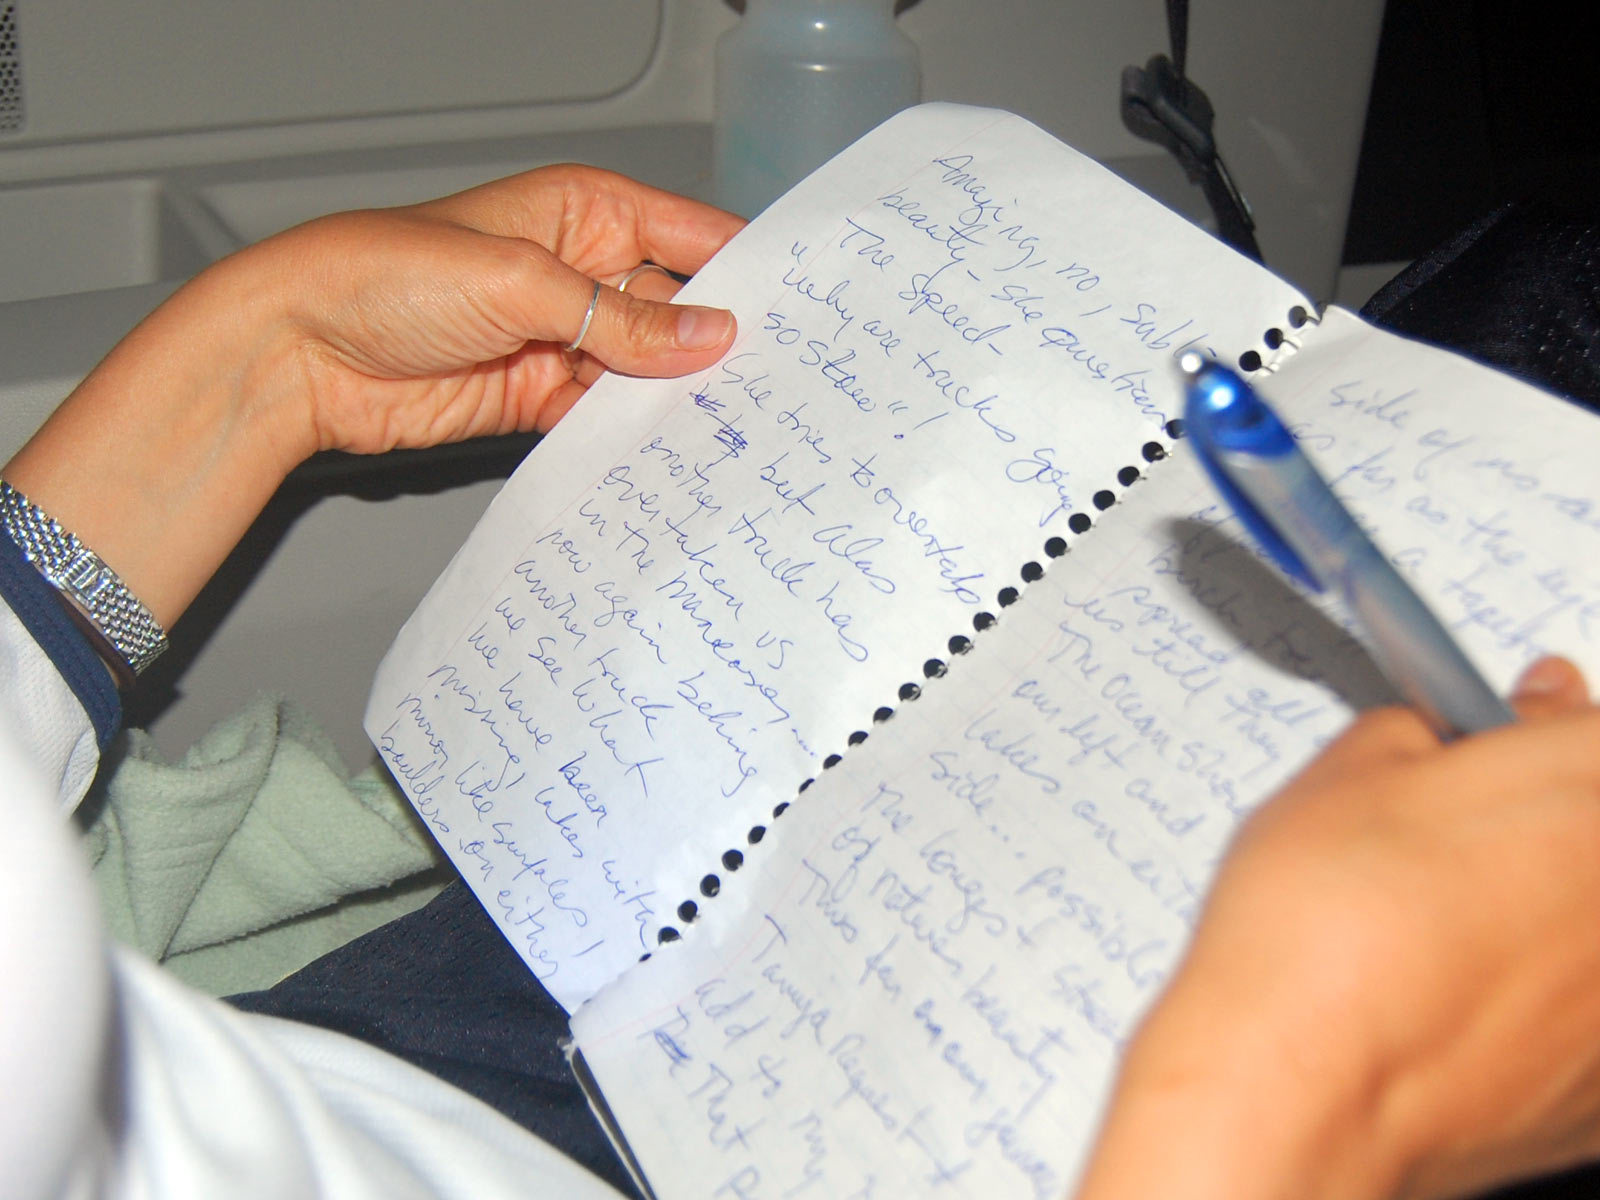 Amazing, no, subl-
beauty - She questions
The speed -
"Why are trucks going
so slow"!
She tries to overtake
but alas
another truck has
overtaken us
in the
now again behind
another truck
we see what
we have been
missing, lakes with
mirror like surfaces!
boulders on either
side of us
as far as the eye
a
birch trees
spread all
us still they
The Ocean
our left and
lakes on
side... possibl
The longest
of natures beauty
Thus far on our
Tanya Request
add to my
That